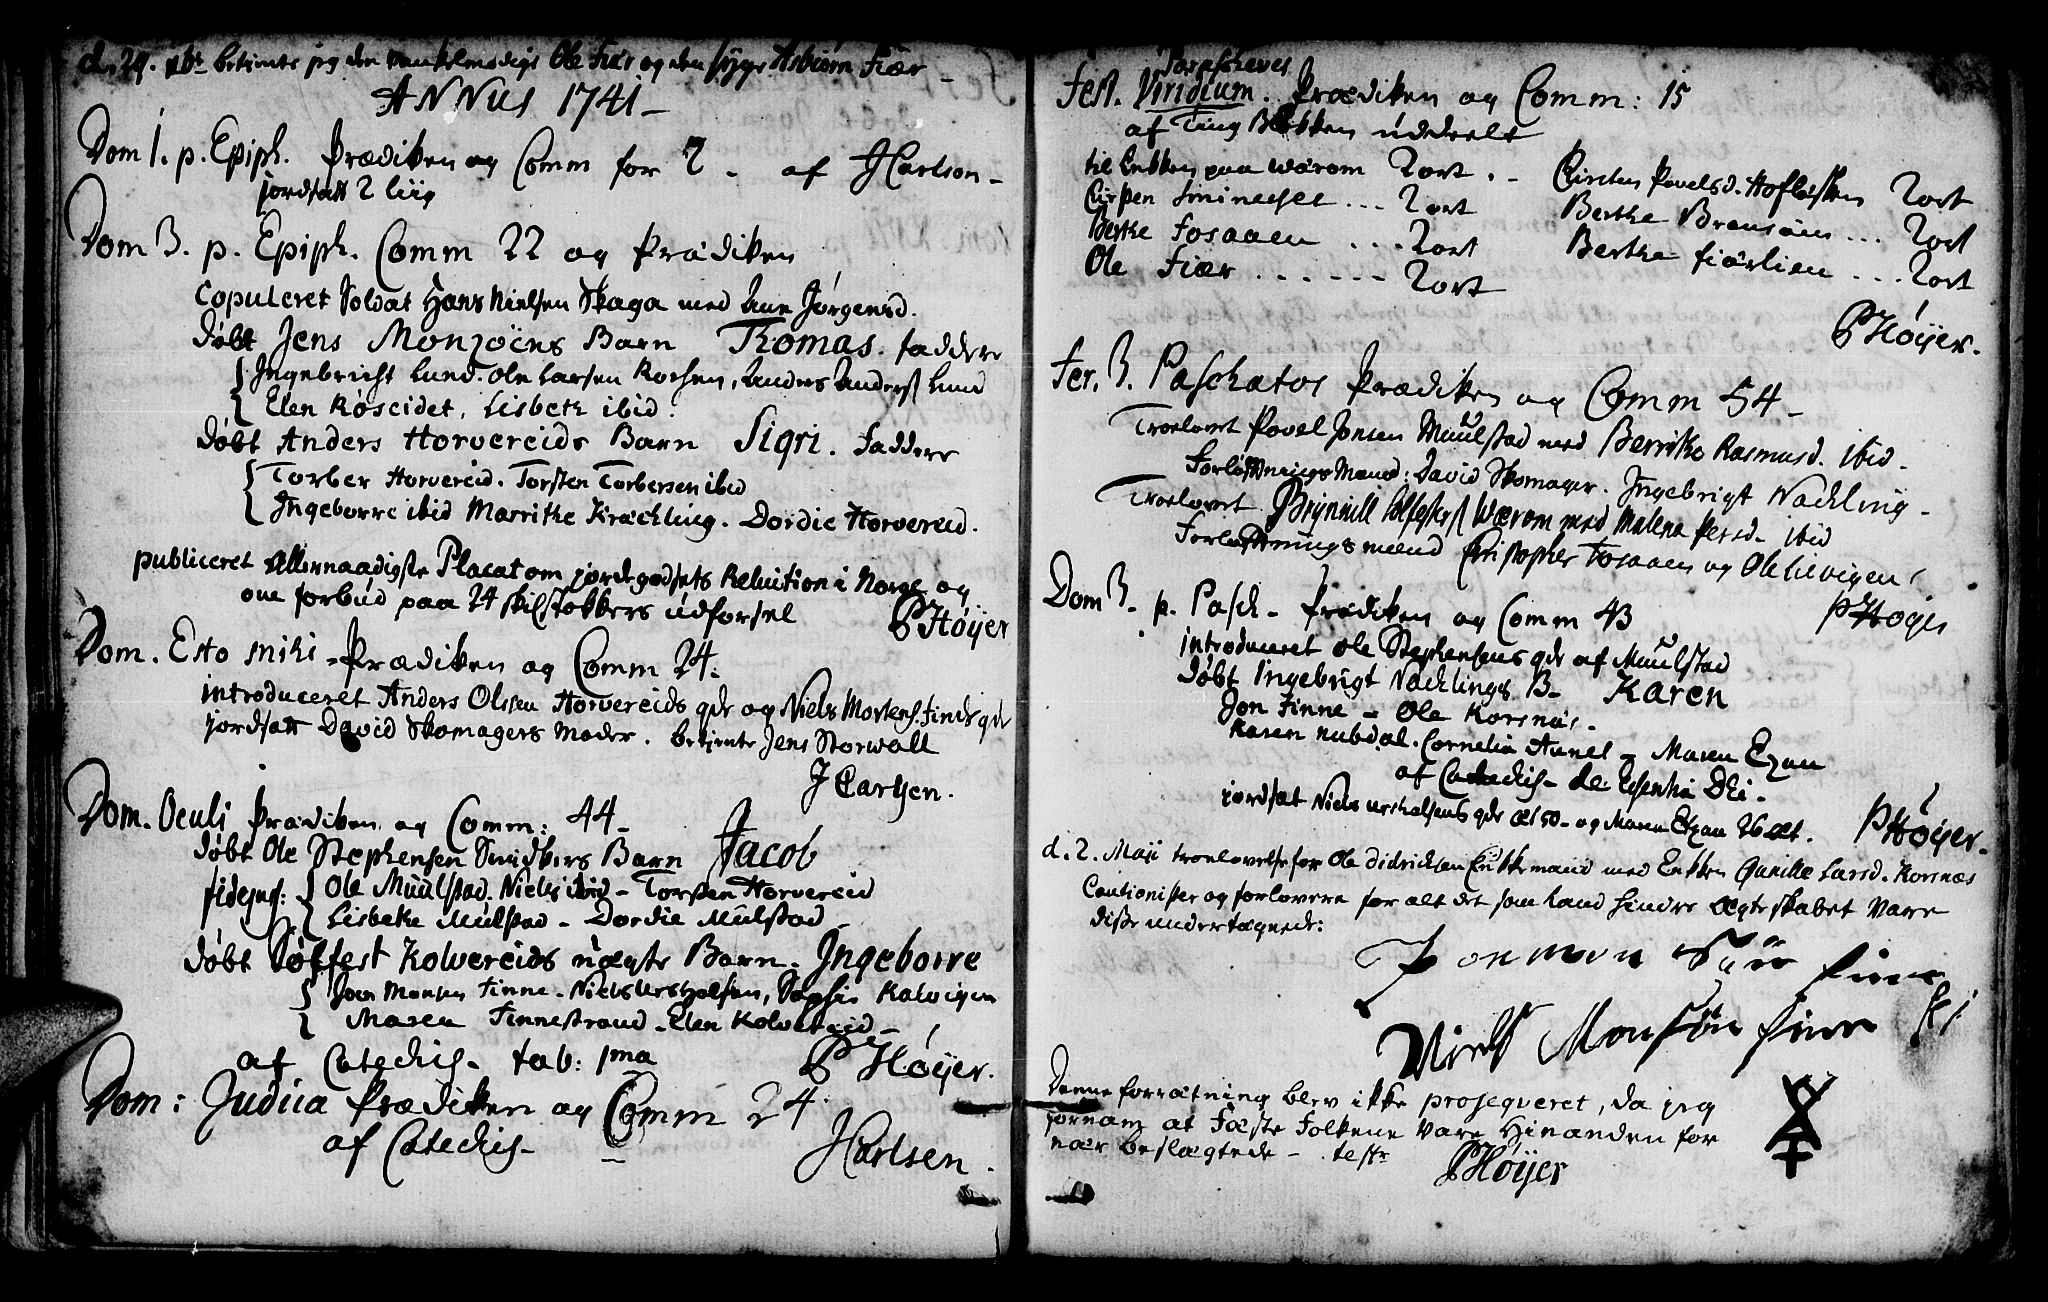 d. 29. xbr betiente jeg den vankelmodige Ole Fiær og den syge Asbiørn Fiær
ANNUS 1741
Dom 1. p. Epiph. Prædiken og Comm for 2. af J Carlsen
jordsatt 2 liig
Dom 3. p. Epiph. Comm 22 og Prædiken
Copuleret Soldat Hans Nielsen Skaga med Ane Jørgensd.
døbt Jens Monsøens Barn Thomas. faddere
Ingebricht Lund. Ole Larsen Rochen, Anders Anders Lund
Elen Røseidet, Lisbeth ibid.
døbt Anders Horvereids Barn Sigri. faddere
Torber Horvereid. Torsten Torbersen ibid
Ingeborre ibid Marrithe Kræchling. Dordie Horvereid.
publiceret Allernaadigste Placat om jordegodsets Reluition i Norge og
om forbud paa 24 skilstøkkers udførsel
P Høyer
Dom. Esto mihi Prædiken og Comm 24.
introduceret Anders Olssen Horvereids qde og Niels Mortens. Finde qde
jordsatt David Skomagers Moder. betiente Jens Storvall
J Carlsen.
Dom. Oculi Prædiken og Comm: 44
døbt Ole Stephensen Barn Jacob
fidejus: Ole Muulstad. Niels ibid - Torsten Horvereid
Lisbeke Mulstad - Dordie Mulstad
døbt Søffest Kolvereids uægte Barn. Ingeborre
Joen Monsen Finne. Niels Ursholsen, Sophie Kalvigen
Maren Finnestrand. Elen Kolvereid
af Catechis. tab: 1ma P Høyer.
Dom: Judica Prædiken og Comm 24.
af Catechis.
J Carlsen.
Parasceves
Fest. Viridium. Prædiken og Comm: 15
af Ting Bøkken uddeelt
til Enken paa Wærom 2 ort. Kirsten Povelsd. 2 ort
2 ort Berthe Brensøen ... 2 ort
Berthe Fosaaen ... 2 ort Berthe Fiærlien ... 2 ort
Ole Fiær ...... 2 ort
P Høyer.
Fer. 3. Paschatos Prædiken og Comm 54
Troelovet Povel Jonsen Muulstad med Berrithe Rasmusd. ibid.
Forløftnings Mænd: David Skomager. Ingebrigt Nachling
Troelovet Brynnill Wærom med Malena Persd. ibid
Forløftningsmænd Christopher Fosaaen og Ole Lievigen
P Høyer
Dom 3. p. Pasch. Prædiken og Comm 43
introduceret Ole Stephensens qde af Muulstad
døbt Ingebrigt Nachlings B. Karen
Jon Finne - Ole Korsnæs.
Karen Nubdal. Cornelia Aunet - Maren Ezan
af Catechis. de Essentia Dei.
jordsæt Niels Ursholsens qde æt 50 - og Maren Ezan 26 æt. P Høyer.
d. 2. Maji troelovelse for Ole Didrichsen Enkkemand med Enkken Gunille Larsd. Korsnæs
Cautionister og forlovere for alt det som kand hindre Ægteskabet vare
disse undertegnede:
Jon mon Søn finne
Niels Monsøn finne
Denne forrætning blev ikke proseqveret, da jeg
fornam at Fæste Folkene vare Hinanden for
nær beslægtede - teste
P Høyer